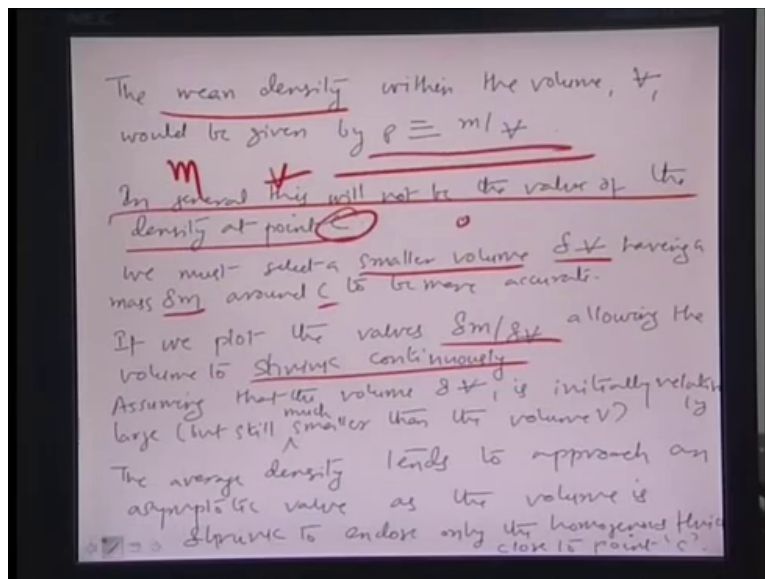 NEC
The mean density within the volume, V,
would be given by ρ ≡ m/V
m V
In general this will not be the value of the
density at point C.
We must select a smaller volume δV having a
mass δm around C to be more accurate.
If we plot the values δm/δV allowing the
volume to shrink continuously
Assuming that the volume δV, is initially relatively
large (but still much smaller than the volume V)
The average density tends to approach an
asymptotic value as the volume is
shrunk to enclose only the homogenous fluid
close to point 'C'.